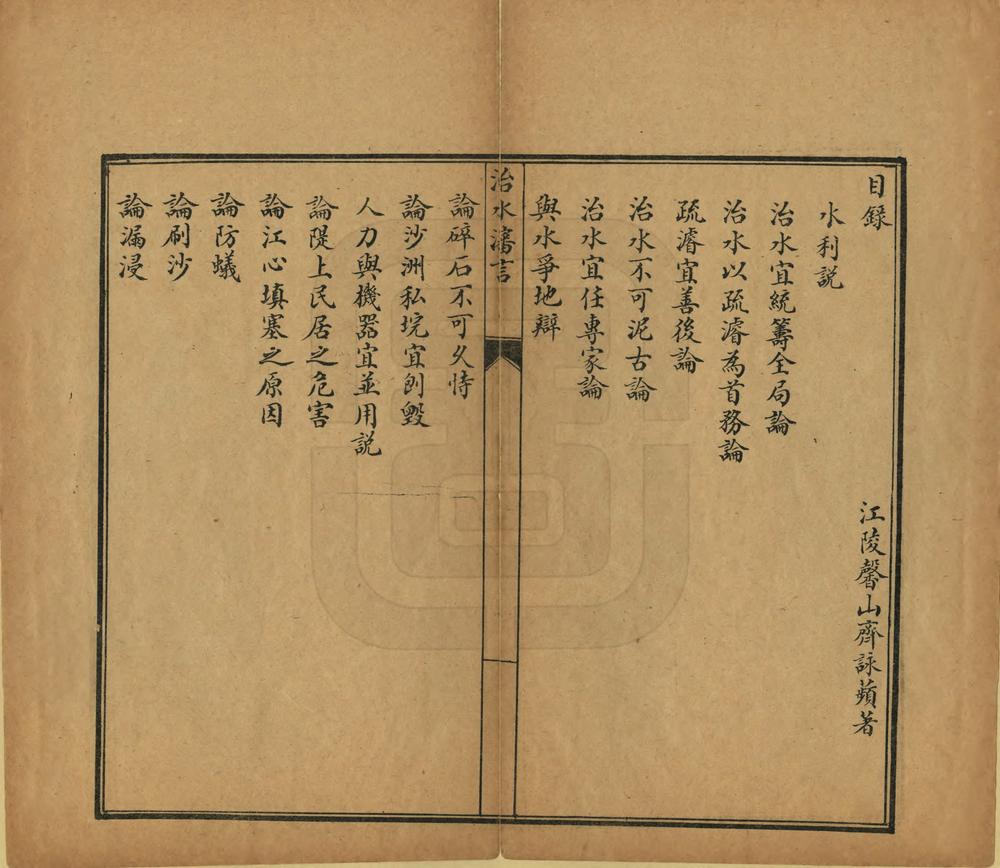 目錄
江陵馨山齊詠蘋著
水利説
治水宜統籌全局論
治水以疏濬為首務論
疏濬宜善後論
治水不可泥古論
治水宜任專家論
與水爭地辯
治水瀋言
論碎石不可久恃
論沙洲私垸宜刨毀
人力與機器宜並用説
論隄上民居之危害
論江心填塞之原因
論防蟻
論刷沙
論漏浸